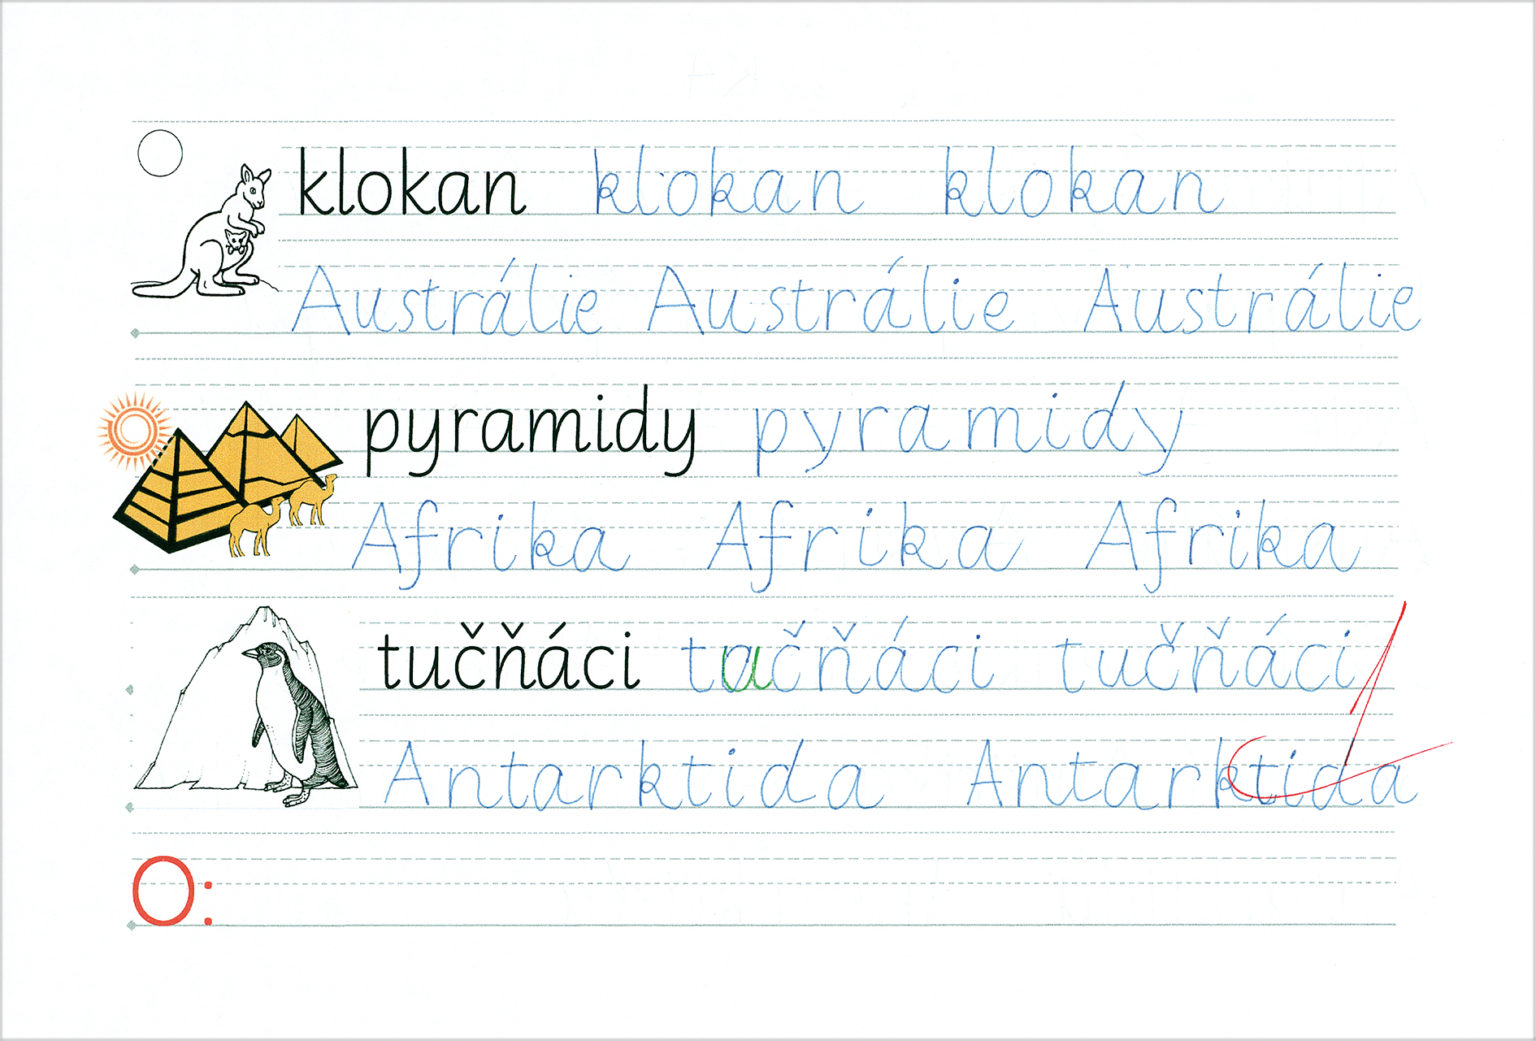 klokan klokan klokan
Austrálie Austrálie Austrálie
pyramidy pyramidy
Afrika Afrika Afrika
tučňáci tučňáci tučňáci
Antarktida Antarktida
O: